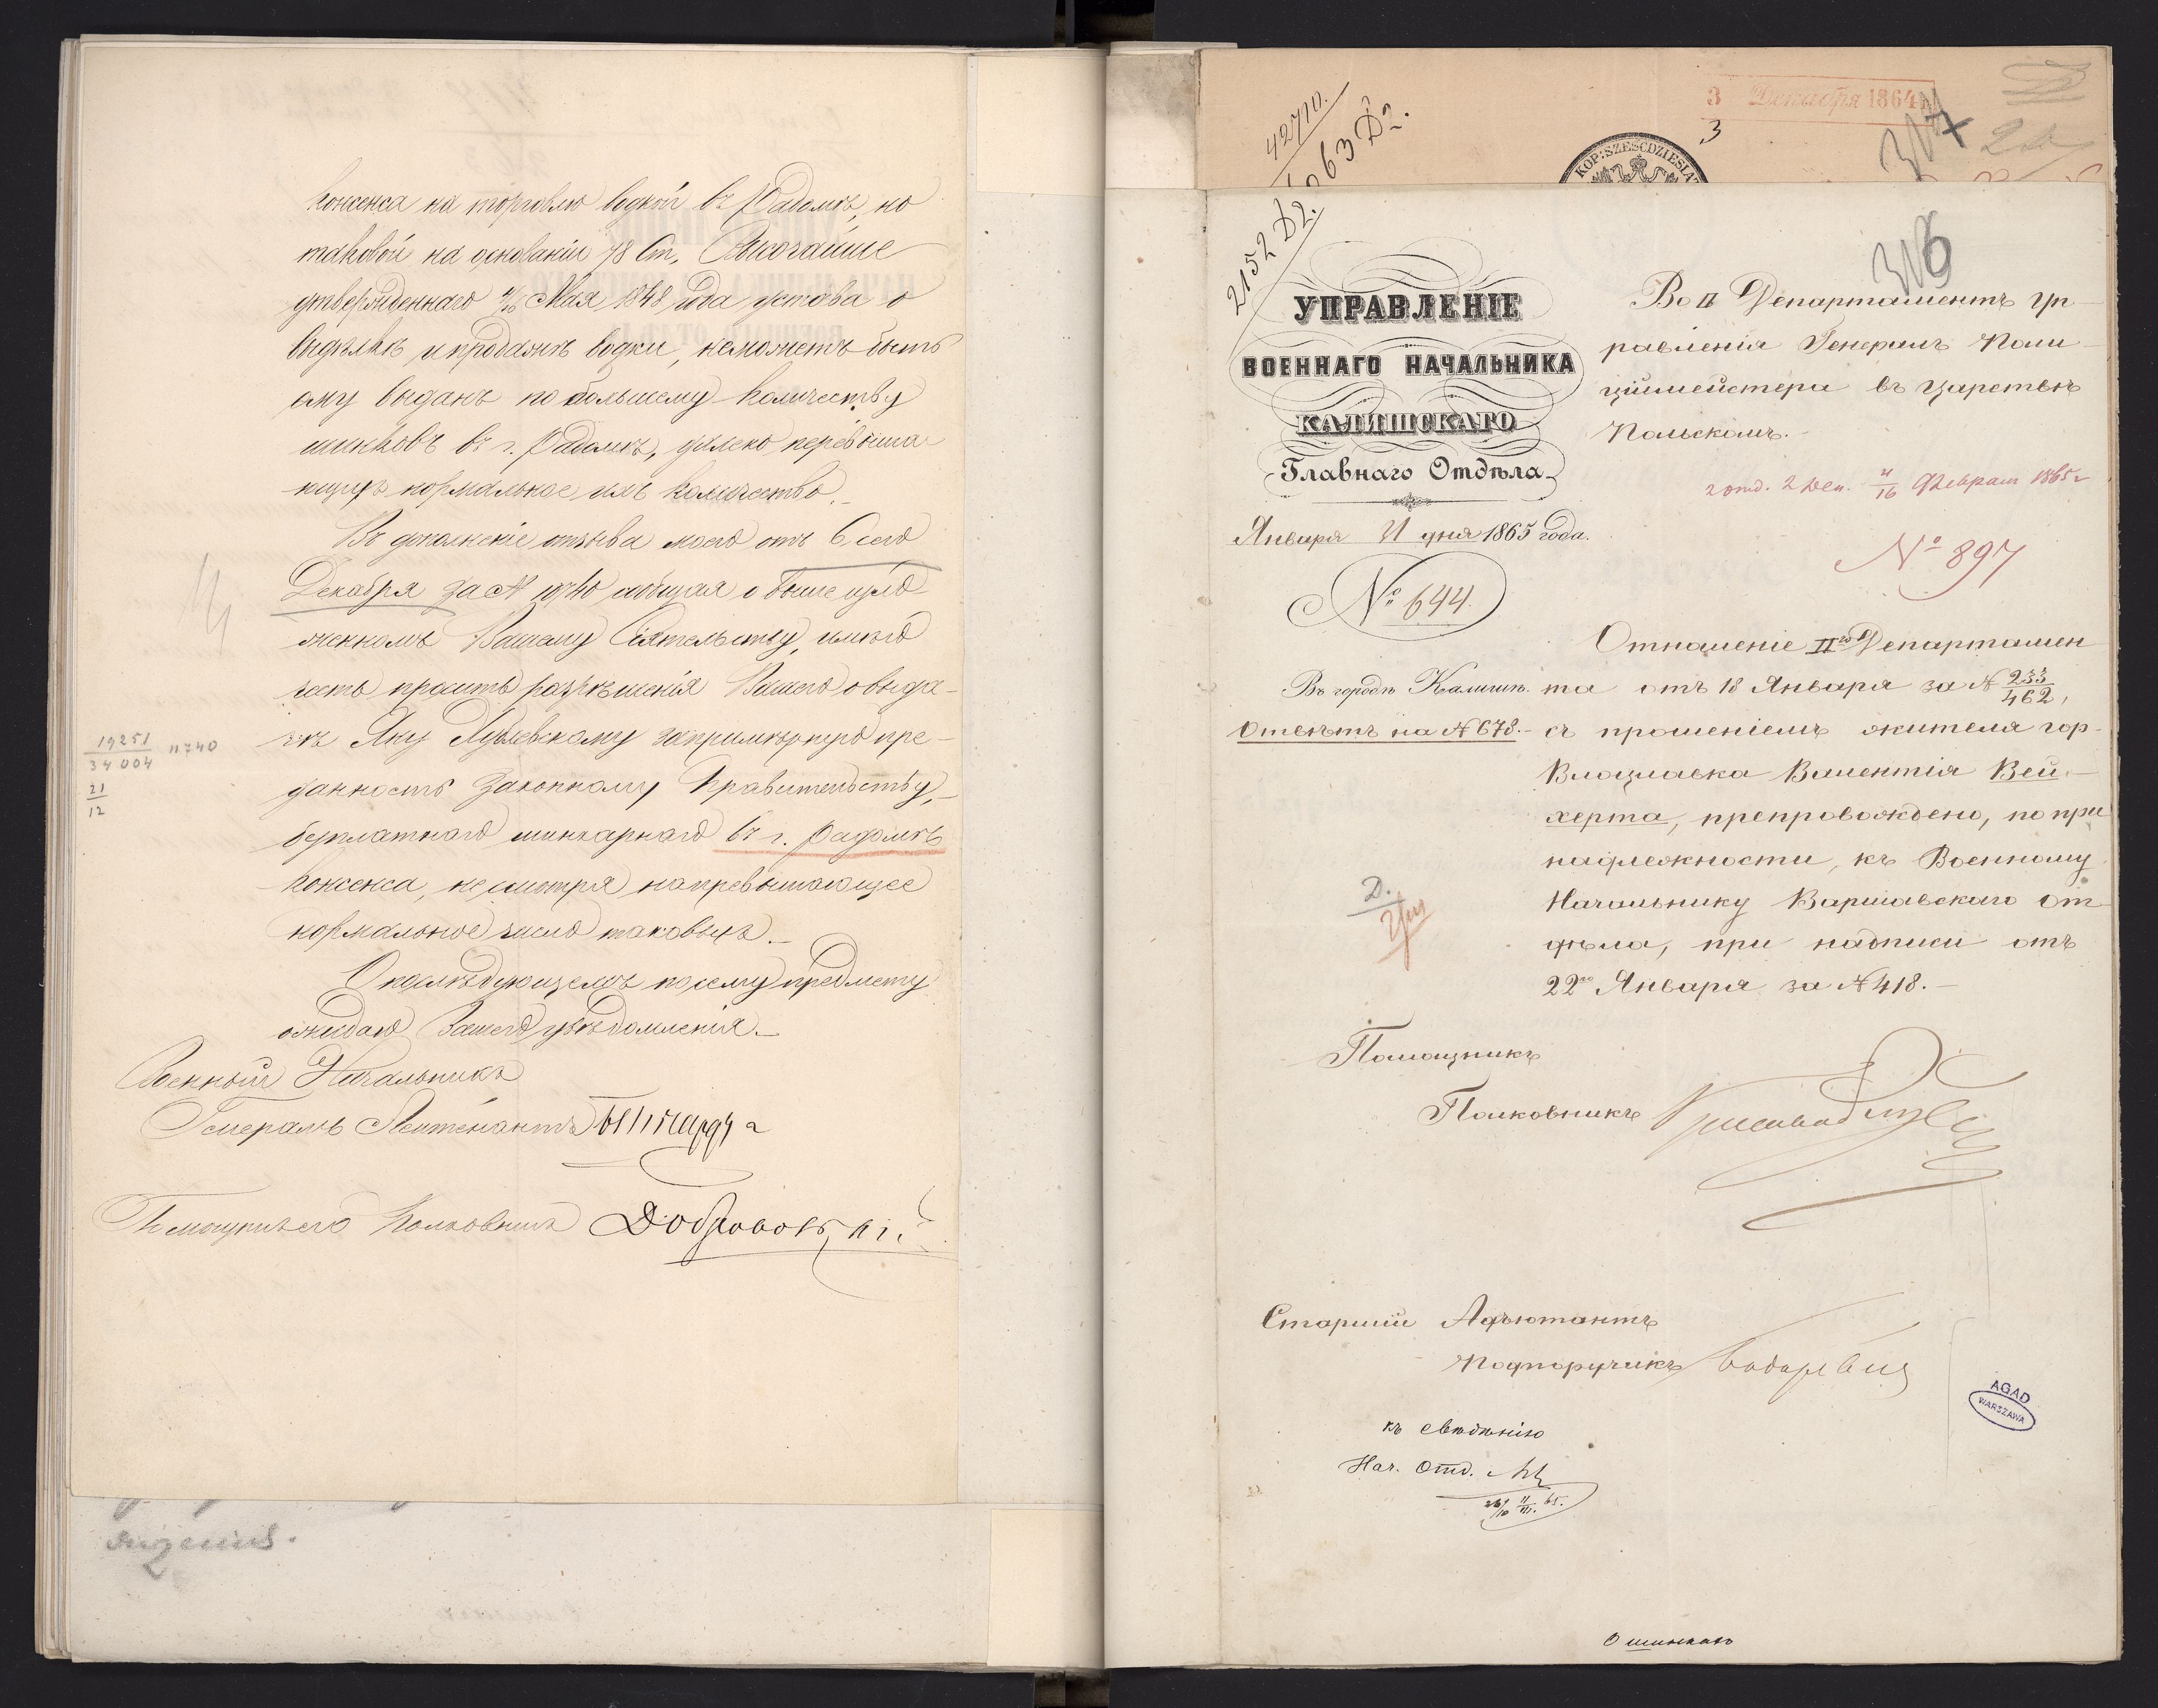 консенса на торговлю водкой въ Радомѣ, но
таковой на основаніи 78 Ст. Высочайше
утвержденнаго 4/16 Мая 1848 года устава о
выдѣлкѣ и продажѣ водки, неможетъ быть
ему выданъ по большему количеству
шинковъ въ г. Радомѣ, далеко перевыша-
ющихъ нормальное ихъ количество.
Въ дополненіе отзыва моего отъ 6 сего
Декабря за № 10740 сообщая о вышеизло-
женномъ Вашему Сіятельству, имѣю
честь просить разрѣшенія Вашего о выда-
чѣ Яну за примѣрную пре-
данность законному Правительству,
безплатнаго шинкарнаго въ г. Радомѣ
консенса, не смотря на превышающее
нормальное число таковыхъ.
О послѣдующемъ по сему предмету
ожидаю Вашего увѣдомленія.
Военный Начальникъ
Генералъ Лейтенантъ
Помощникъ его Полковникъ
19251
34004
11740
21
12
3 Декабря 1864
3
42710.
63 Д2.
2152 Д2.
KOP: SZEŚĆDZIESIĄ
317
316
УПРАВЛЕНІЕ
ВОЕННАГО НАЧАЛЬНИКА
КАЛИШСКАГО
Главнаго Отдѣла
Января 31 дня 1865 года.
№ 644.
Въ городѣ Калишѣ.
Отвѣтъ на № 678.
Во II Департаментъ Уп-
равленія Генералъ Поли-
ціймейстера въ Царствѣ
Польскомъ.
2 отд. 2 Деп. 4/16 Февраля 1865 г
№ 897
Отношеніе IIго Департамен-
та отъ 18 Января за № 233/462,
съ прошеніемъ жителя гор.
Влоцлавка Валентія Вей-
херта, препровождено, по при
надлежности, къ Военному
Начальнику Варшавскаго От-
дѣла, при надписи отъ
22го Января за № 418.
Д.
Помощникъ
Полковникъ
Старшій Адъютантъ
Подпоручикъ
къ свѣдѣнію
Нач. Отд.
AGAD
WARSZAWA
О шинкахъ